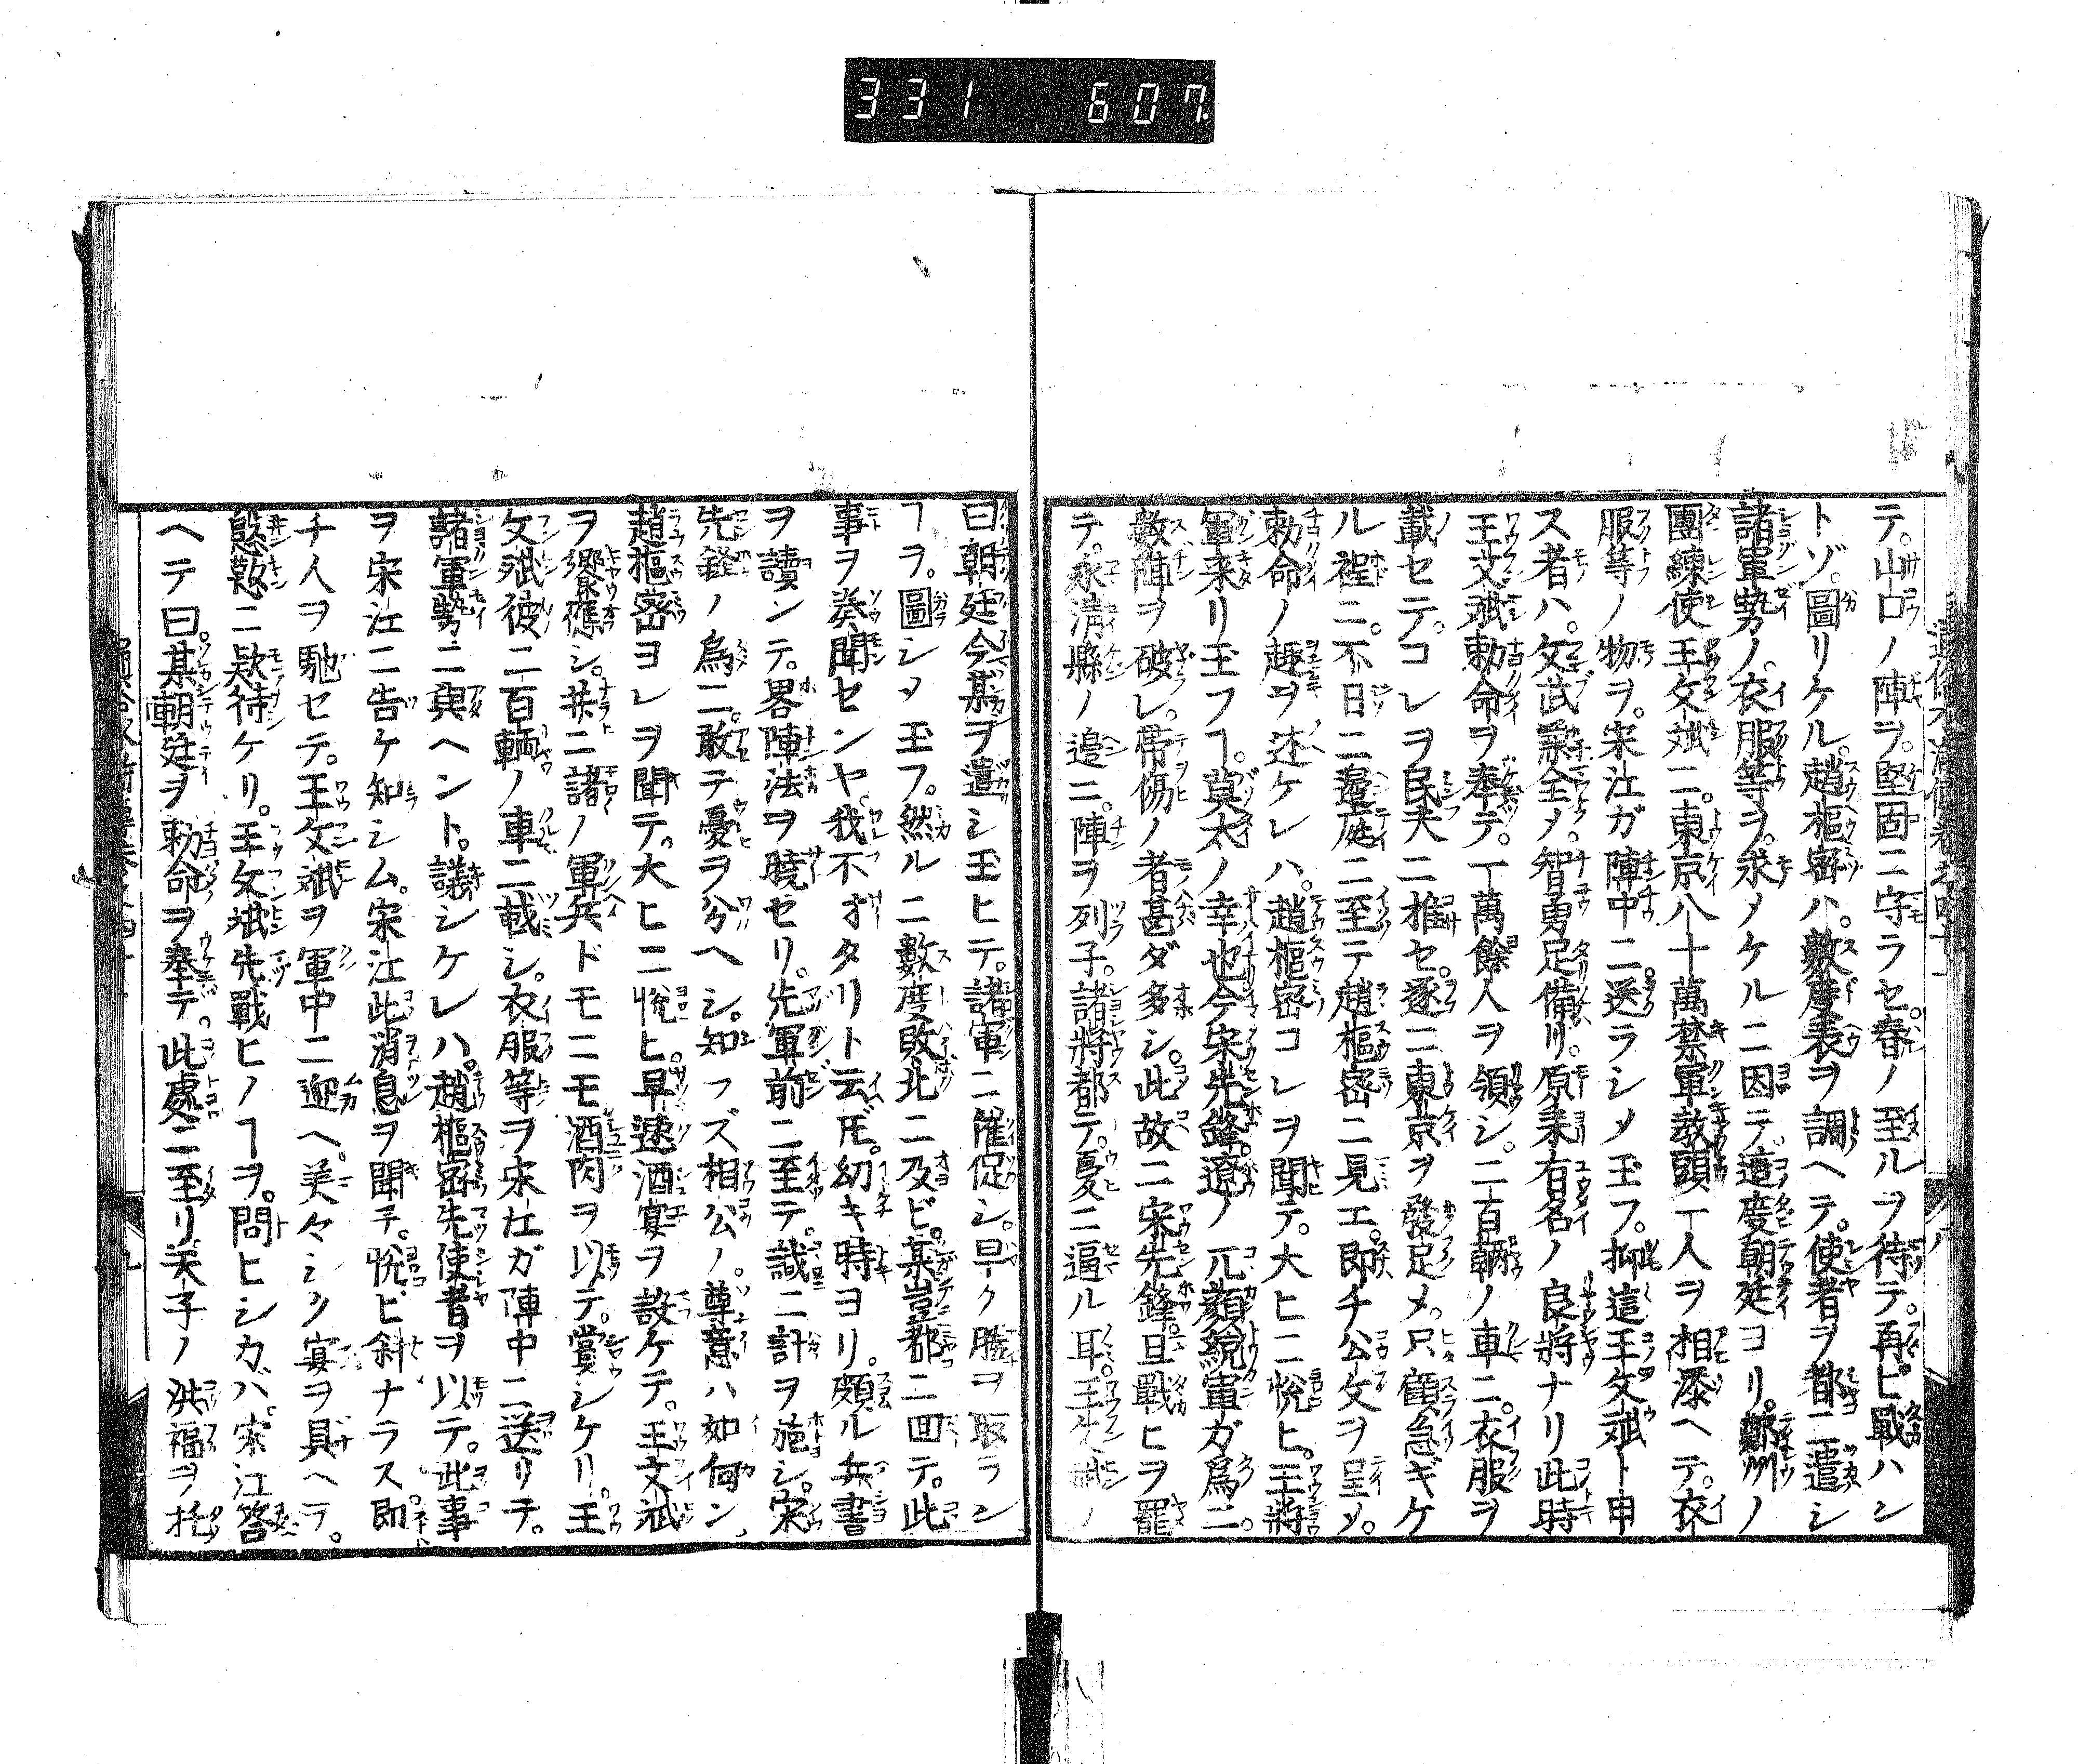 331 607
テ。山口ノ陣ヲ。堅固ニ守ラセ。春ノ至ルヲ待テ。再ヒ戰ハン
トゾ。圖リケル。趙樞密ハ。數度表ヲ調ヘテ。使者ヲ都ニ遣シ
諸軍勢ノ。衣服等ヲ。求メケルニ因テ。這度朝廷ヨリ。鄭州ノ
團練使王文斌ニ。東京八十萬禁軍敎頭一人ヲ相添ヘテ。衣
服等ノ物ヲ。宋江ガ陣中ニ送ラシメ玉フ。抑這王文斌ト申
ス者ハ。文武兼全メ。智勇足備リ。原来有名ノ良將ナリ此時
王文斌勅命ヲ奉テ。一萬餘人ヲ領シ。二百輌ノ車ニ。衣服ヲ
載セテ。コレヲ民夫ニ推セ。遂ニ東京ヲ發足メ。只顧急ギケ
ル裎ニ。不日ニ邉庭ニ至テ趙樞密ニ見エ。即チ公文ヲ呈メ。
勅命ノ趣ヲ述ケレハ。趙樞密コレヲ聞テ。大ヒニ悦ヒ。王將
軍来リ玉フヿ。莫太ノ幸也今宋先鋒。遼ノ兀顔統軍ガ爲ニ。
數陣ヲ破レ。帶傷ノ者甚ダ多シ。此故ニ宋先鋒。旦戰ヒヲ罷
テ。永清縣ノ邉ニ。陣ヲ列子。諸將都テ。憂ニ逼ル耳。王文斌ノ
曰朝廷今某ヲ遣シ玉ヒテ。諸軍ニ催促シ。早ク勝ヲ取ラン
ヿヲ。圖シメ玉フ。然ルニ數度敗北ニ及ビ。某豈都ニ囬テ。此
事ヲ奏聞センヤ。我不才タリト云ドモ。幼キ時ヨリ。頗ル兵書
ヲ讀ンテ。畧陣法ヲ暁セリ。先軍前ニ至テ。誠ニ計ヲ施シ。宋
先鋒ノ爲ニ。敢テ憂ヲ分ヘシ。知ラズ相公ノ。尊意ハ如何ン
趙樞密ヨレヲ聞テ。大ヒニ悦ヒ。早速酒宴ヲ設ケテ。王文斌
ヲ饗應シ。并ニ諸ノ軍兵ドモニモ酒肉ヲ以テ。賞シケリ。王
文斌彼二百輌ノ車ニ載シ。衣服等ヲ宋江ガ陣中ニ送リテ。
諸軍勢ニ與ヘント。議シケレハ。趙樞密先使者ヲ以テ。此事
ヲ宋江ニ告ケ知シム。宋江此消息ヲ聞テ。悦ビ斜ナラス即
チ人ヲ馳セテ。王文斌ヲ軍中ニ迎ヘ。美々シク宴ヲ具ヘテ。
慇懃ニ欵待ケリ。王文斌先戰ヒノヿヲ。問ヒシカバ。宋江答
ヘテ曰。某朝廷ヲ勅命ヲ奉テ。此處ニ至リ。天子ノ洪福ヲ托